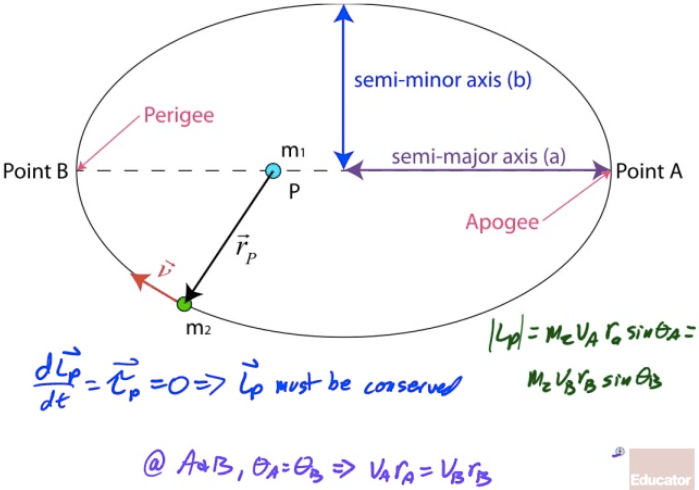 semi-minor axis (b)
Perigee
m₁
semi-major axis (a)
Point B
Point A
P
Apogee
r⃗_P
v⃗
m₂
|L_p| = m₂ v_A r_a sin θ_A =
m₂ v_B r_B sin θ_B
dL⃗_p/dt = τ⃗_p = 0 => L⃗_p must be conserved
@ A&B, θ_A = θ_B => v_A r_A = v_B r_B
Educator